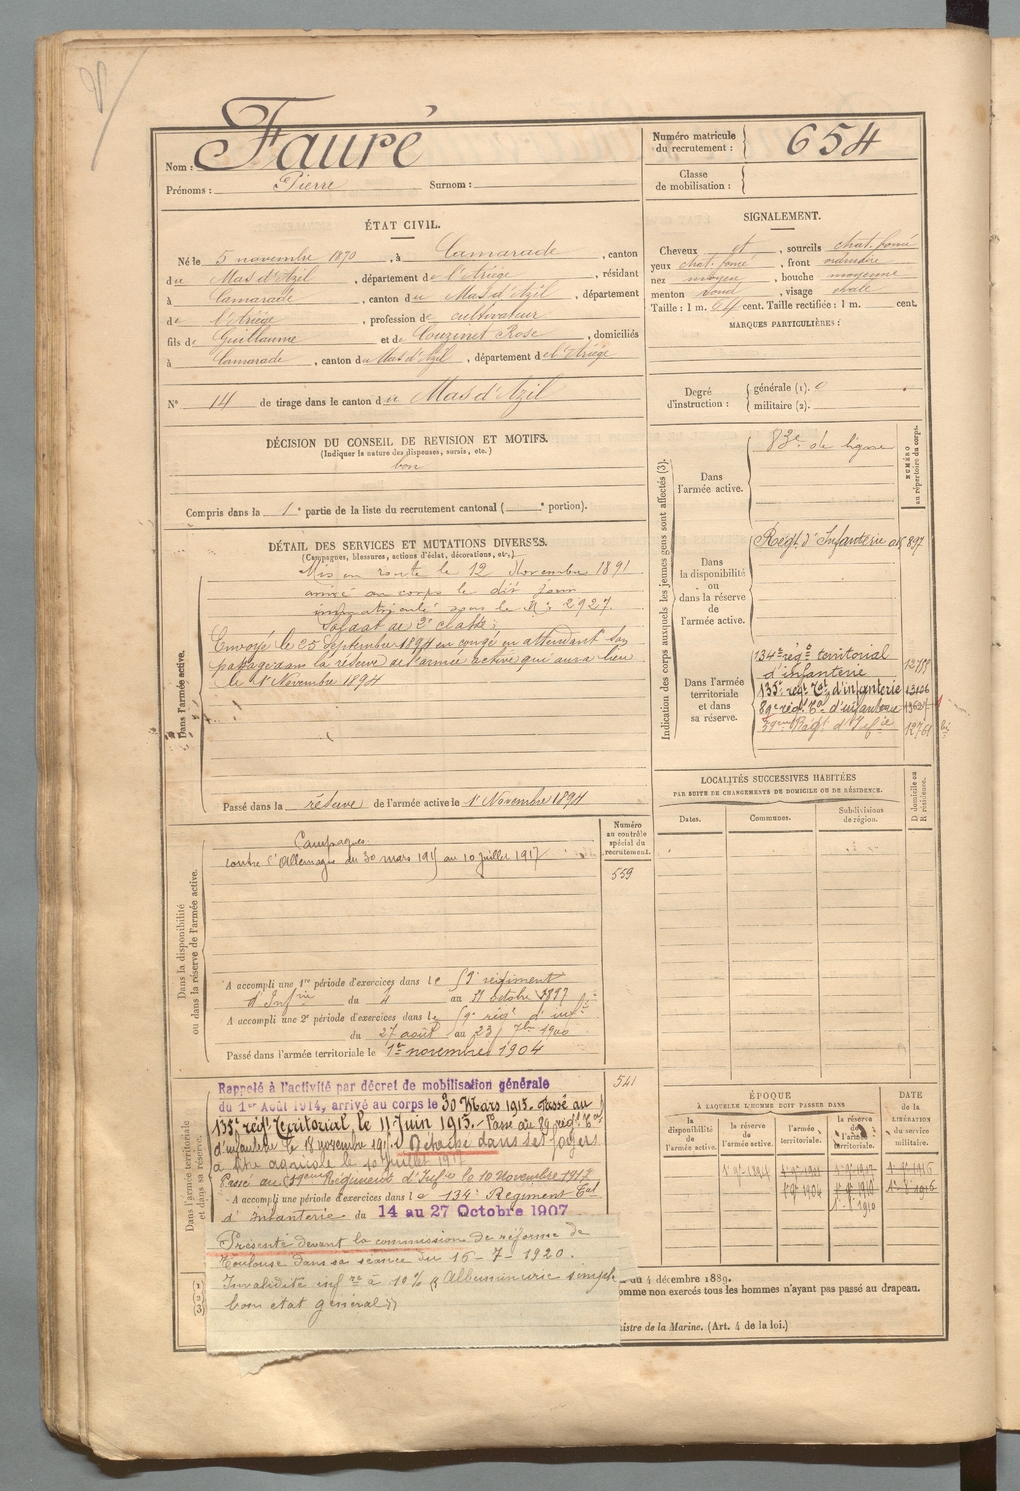 Nom : Fauré
Prénoms : Pierre Surnom :
Numéro matricule du recrutement : 654
Classe de mobilisation :
ÉTAT CIVIL.
Né le 5 novembre 1870, à Camarade, canton
du Mas d'Azil, département de l'Ariège, résidant
à Camarade, canton du Mas d'Azil, département
de l'Ariège, profession de cultivateur
fils de Guillaume et de Couzinet Rose, domiciliés
à Camarade, canton du Mas d'Azil, département de l'Ariège
N° 14 de tirage dans le canton du Mas d'Azil
SIGNALEMENT.
Cheveux et, sourcils chat. foncé
yeux chat. foncé, front ordinaire
nez moyen, bouche moyenne
menton rond, visage ovale
Taille : 1 m. 64 cent. Taille rectifiée : 1 m. cent.
MARQUES PARTICULIÈRES :
Degré d'instruction : générale (1). 0
militaire (2).
DÉCISION DU CONSEIL DE REVISION ET MOTIFS.
(Indiquer la nature des dispenses, sursis, etc.)
bon
Compris dans la 1e partie de la liste du recrutement cantonal ( e portion).
DÉTAIL DES SERVICES ET MUTATIONS DIVERSES.
(Campagnes, blessures, actions d'éclat, décorations, etc.)
Dans l'armée active.
Mis en route le 12 Novembre 1891
arrivé au corps le dit jour
immatriculé sous le N° 2927.
Soldat de 2e classe
Envoyé le 25 Septembre 1894 en congé en attendant son
passage dans la réserve de l'armée active qui aura lieu
le 1er Novembre 1894
Passé dans la réserve de l'armée active le 1er Novembre 1894
Indication des corps auxquels les jeunes gens sont affectés (3).
NUMÉRO au répertoire du corps.
Dans l'armée active.
83e de ligne
Dans la disponibilité ou dans la réserve de l'armée active.
Régt. d'Infanterie 897
Dans l'armée territoriale et dans sa réserve.
134e régt territorial
d'infanterie
135e régt Tal d'infanterie 13106
89e régt Tal d'infanterie
59eme Régt d'Infie 12761
LOCALITÉS SUCCESSIVES HABITÉES
PAR SUITE DE CHANGEMENTS DE DOMICILE OU DE RÉSIDENCE.
Dates. Communes. Subdivisions de région. D domicile ou R résidence.
Dans la disponibilité ou dans la réserve de l'armée active.
Numéro au contrôle spécial du recrutement.
559
Campagnes
contre l'Allemagne du 30 mars 1915 au 10 juillet 1917
A accompli une 1re période d'exercices dans le 59e régiment
d'Infrie du 4 au 31 octobre 1897
A accompli une 2e période d'exercices dans le 59e régt d'infie
du 27 août au 23 7bre 1900
Passé dans l'armée territoriale le 1er novembre 1904
Dans l'armée territoriale et dans sa réserve.
541
Rappelé à l'activité par décret de mobilisation générale
du 1er Août 1914, arrivé au corps le 30 Mars 1915. Passé au
135e régt Territorial, le 11 Juin 1915. Passé au 89 régt Tal
d'infanterie le 18 novembre 191 Détaché dans ses foyers
à titre agricole le 10 juillet 1917
Passé au 59eme Régiment d'Infie le 10 Novembre 1917
A accompli une période d'exercices dans le 134e Régiment Tal
d'Infanterie du 14 au 27 Octobre 1907
Présenté devant la commission de réforme de
Toulouse dans sa séance du 16-7-1920.
Invalidité infre à 10% « Albuminurie simple
bon état général »
ÉPOQUE
À LAQUELLE L'HOMME DOIT PASSER DANS
DATE de la LIBÉRATION du service militaire.
la disponibilité de l'armée active. la réserve de l'armée active. l'armée territoriale. la réserve de l'armée territoriale.
1 9bre 1894
1 9bre 1904 1 9bre 1910
du 4 décembre 1889.
omme non exercés tous les hommes n'ayant pas passé au drapeau.
nistre de la Marine. (Art. 4 de la loi.)